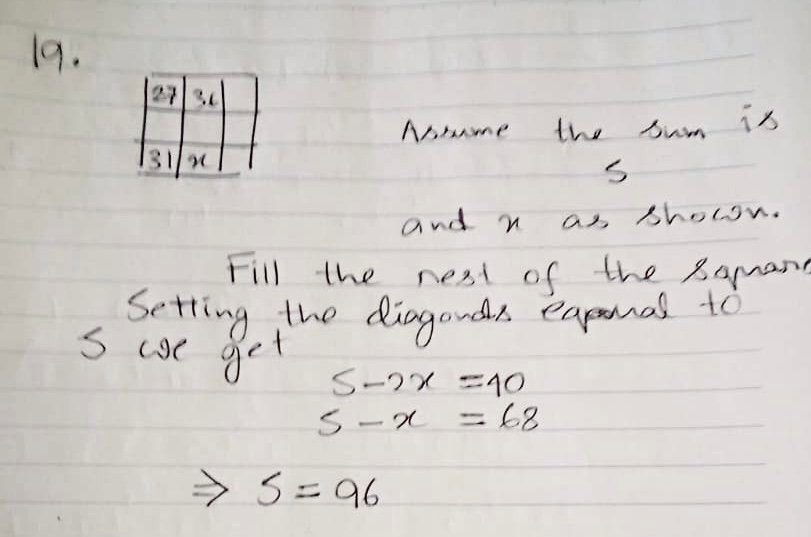 19.
27 36
31 x
Assume the sum is
S
and x as shown.
Fill the rest of the square
Setting the diagonals equal to
S we get
S-2x = 40
S-x = 68
⇒ S = 96